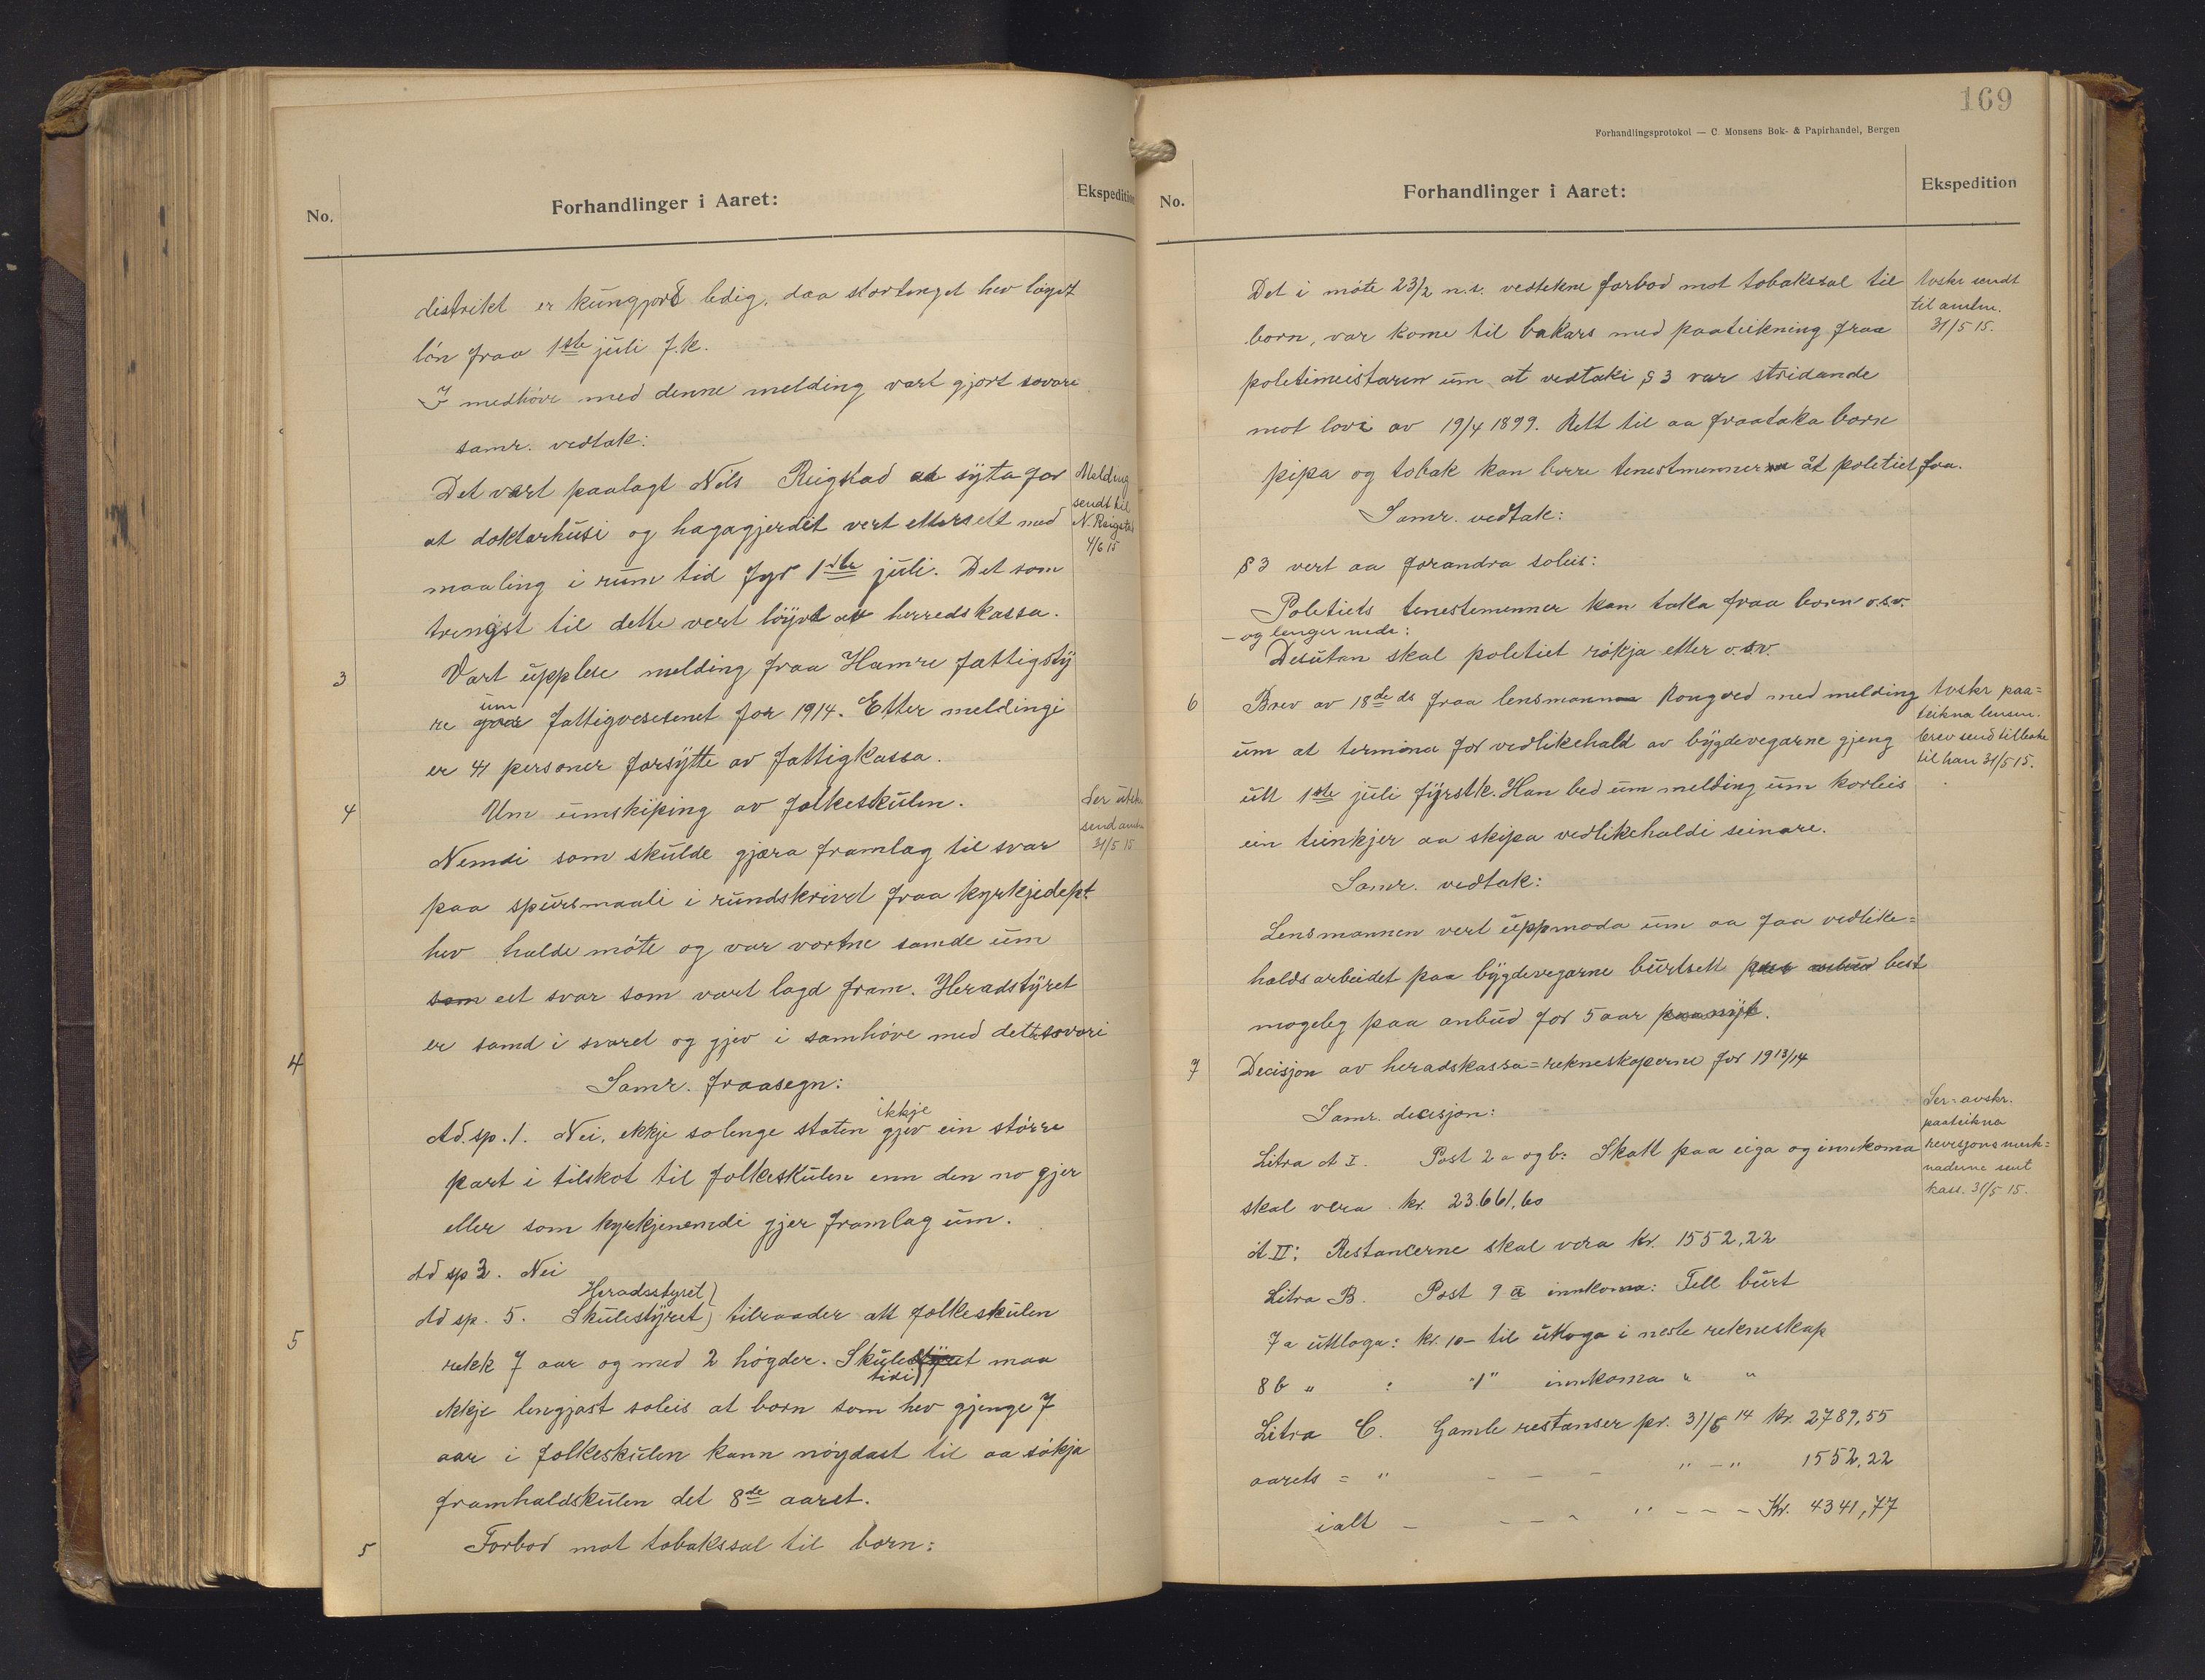 No.
Forhandlinger i Aaret:
Ekspedition
distrikt er kungjord ledig, daa stortinget hev løyvt
løn fraa 1ste juli f.k.
I medhøve med denne melding vart gjort sovore
samr. vedtak:
Det vart paalagt Nils Reigstad at syta for
at doktarhusi og hagagjerdet vert ettersett med
maaling i rum tid fyr 1ste juli. Det som
trengst til dette vert løyvt av herredskassa.
Melding
sendt til
N. Reigstad
4/6 15
3
Vart upplese melding fraa Hamre fattigsty
re um fattigvesesenet for 1914. Etter meldingi
er 41 personer forsytte av fattigkassa.
4
Um umskiping av folkeskulen.
Ser utskr.
send amtm
31/5 15
Nemdi som skulde gjæra framlag til svar
paa spursmaali i rundskrivet fraa kyrkjedept.
hev halde møte og var vortne samde um
som eit svar som vart lagd fram. Heradstyret
er samd i svaret og gjev i samhøve med dette sovori
4
Samr. fraasegn:
Ad. sp. 1. Nei, ikkje solenge staten ikkje gjev ein større
part i tilskot til folkeskulen enn den no gjer
eller som kyrkjenemdi gjer framlag um.
Ad sp 2. Nei
Heradsstyret)
Ad sp. 5. Skulestyret) tilraader att folkeskulen
5
rekk 7 aar og med 2 høgder. Skulestyret maa
tidi
ikkje lengjast soleis at born som hev gjenge 7
aar i folkeskulen kann nøydast til aa søkja
framhaldskulen det 8de aaret.
5
Forbod mot tobakssal til born:
169
Forhandlingsprotokol — C. Monsens Bok- & Papirhandel, Bergen
No.
Forhandlinger i Aaret:
Ekspedition
Det i møte 23/2 n.s. vedtekne forbod mot tobakssal til
born, var kome til bakars med paateikning fraa
politimeistaren um at vedtaki § 3 var stridande
mot lovi av 19/4 1899. Rett til aa fraataka born
pipa og tobak kan berre tenestmenner åt politiet faa.
tvskr sendt
til amtm.
31/5 15.
Samr. vedtak:
§ 3 vert aa forandra soleis:
Politiets tenestemenner kan taka fraa born o.s.v.
– og lenger nede:
Desutan skal politiet røkja etter o.s.v.
6
Brev av 18de ds fraa lensmann Rongved med melding
um at termina for vedlikehald av bygdevegarne gjeng
utt 1ste juli fyrstk. Han bed um melding um korleis
ein teinkjer aa skipa vedlikehaldi seinare.
tvskr paa=
teikna lensm.
brev send tilbake
til han 31/5 15.
Samr. vedtak:
Lensmannen vert uppmoda um aa faa vedlike=
haldsarbeidet paa bygdevegarne burtsett paa anbud best
mogeleg paa anbud for 5 aar paa nytt.
7
Decisjon av heradskassa=rekneskaperne for 1913/14
Samr. decisjon:
Ser: avskr.
paateikna
revisjonsmerk=
naderne sent
kass. 31/5 15.
Litra A I. Post 2 a og b: Skatt paa eiga og innkoma
skal vera kr. 23.661,60
A II: Restancerne skal vera kr. 1552,22
Litra B. Post 9 a innkoma: Fell burt
7 a uttloga: kr. 10– til utloga i neste rekneskap
8 b " : "1" innkoma " "
Litra C. Gamle restanser pr. 31/6 14 kr. 2789,55
aarets = " - - - " - " 1552,22
ialt - - - - " - - - Kr. 4341,77